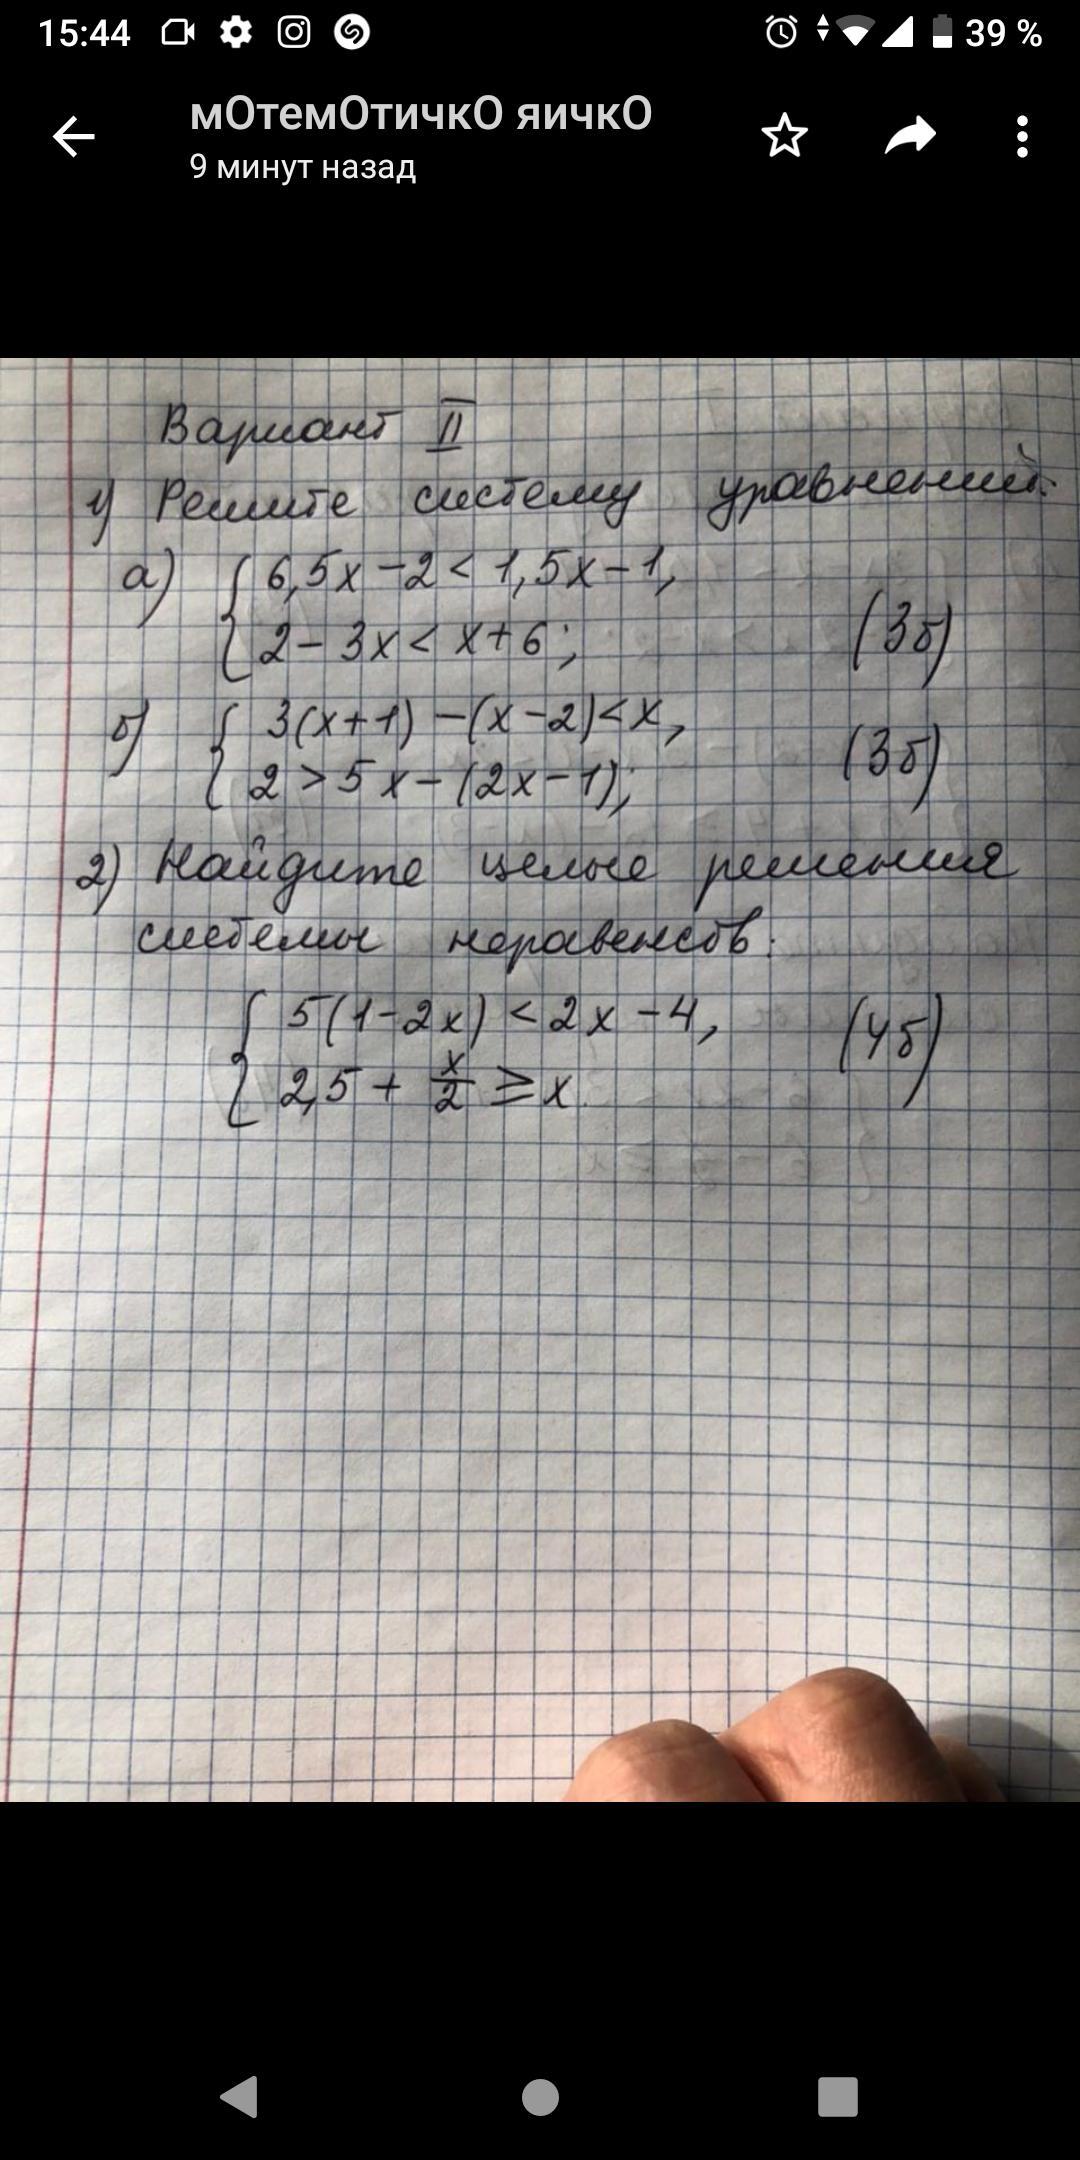 15:44
39 %
мОтемОтичкО яичкО
9 минут назад
Вариант II
1) Решите систему уравнений:
а) { 6,5x - 2 < 1,5x - 1,
2 - 3x < x + 6; (3б)
б) { 3(x+1) - (x-2) < x,
2 > 5x - (2x-1); (3б)
2) Найдите целые решения
системы неравенств:
{ 5(1-2x) < 2x - 4,
2,5 + x/2 ≥ x. (4б)